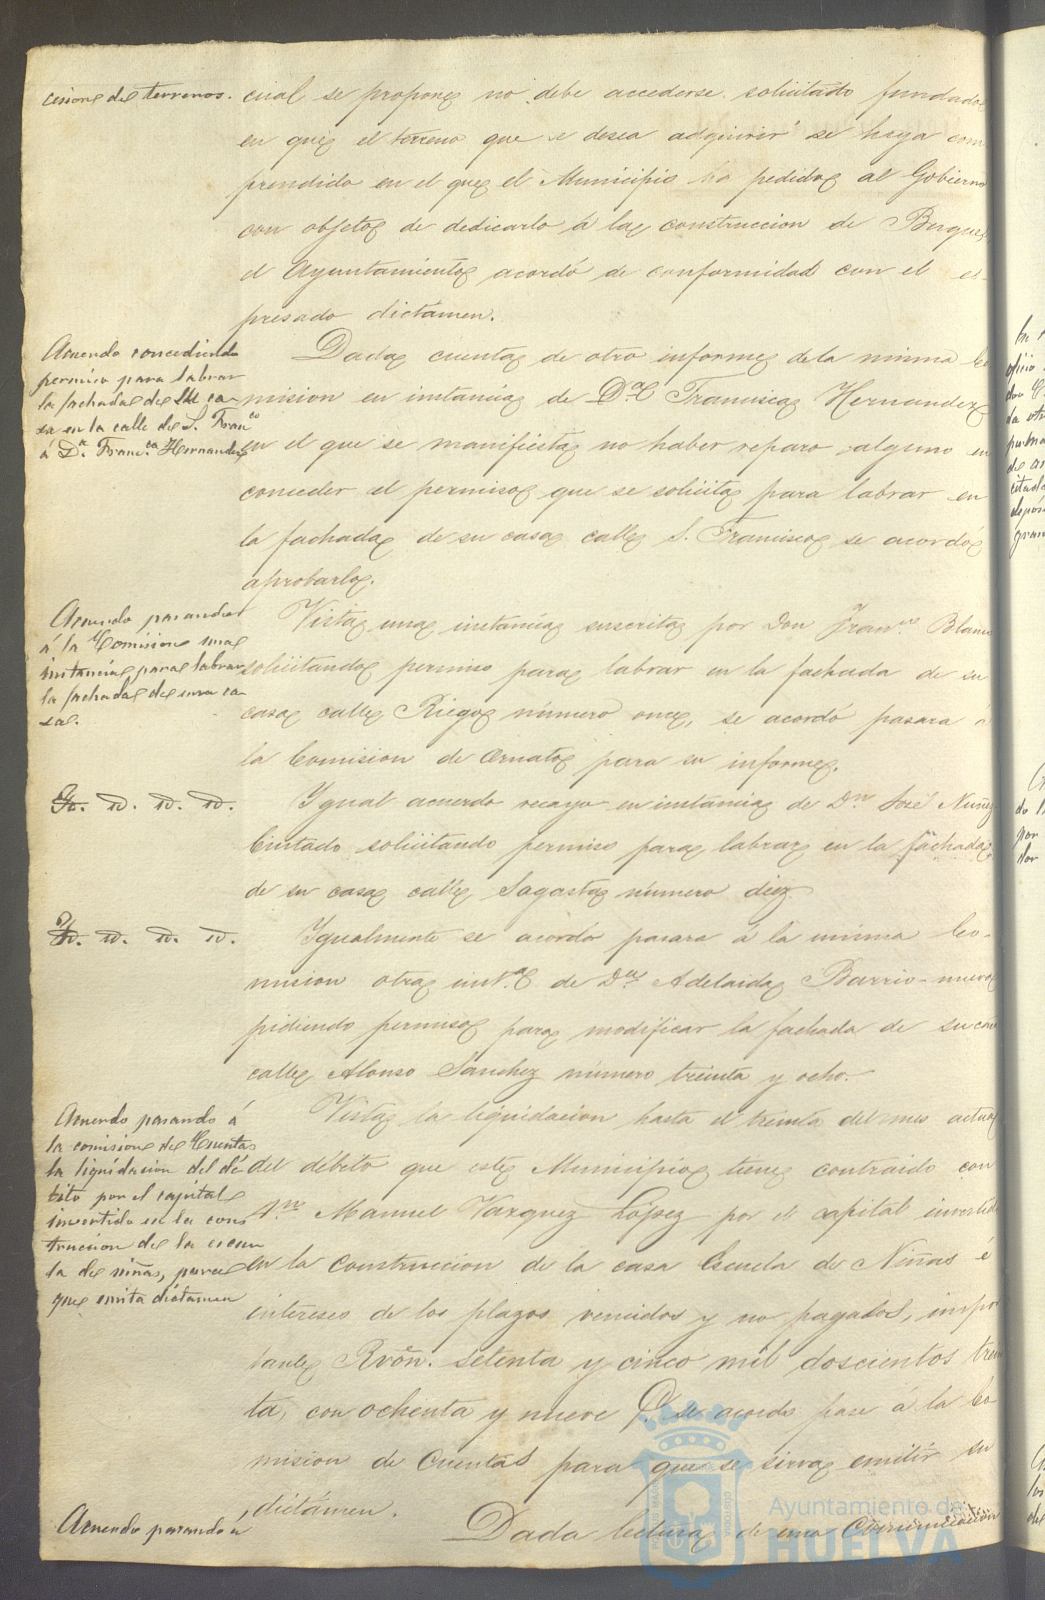 cesion de terrenos.
cual se propone no debe accederse solicitado fundado
en que el terreno que se desea adquirir se haya com
prendido en el que el Municipio ha pedido al Gobierno
con objeto de dedicarlo á la construccion de
el Ayuntamiento acordó de conformidad con el es-
presado dictámen.
Acuerdo concediendo
permiso para labrar
la fachada de su ca-
sa en la calle de S. Franco
á Da. Franca. Hernandez
Dada cuenta de otro informe de la misma Co
mision en instancia de Da. Francisca Hernandez
en el que se manifiesta no haber reparo alguno en
conceder el permiso que se solicita para labrar en
la fachada de su casa calle S. Francisco se acordó
aprobarlo.
Acuerdo pasando
á la Comision una
instancia para labrar
la fachada de una ca-
sa.
Vista una instancia suscrita por Don Franco. Blanco
solicitando permiso para labrar en la fachada de su
casa calle Riego número once, se acordó pasara á
la Comision de Ornato para su informe.
Yd. id. id. id.
Ygual acuerdo recayo en instancia de Dn. José Nuñez
Cintado solicitando permiso para labrar en la fachada
de su casa calle Sagasta número diez
Yd. id. id. id.
Ygualmente se acordó pasara á la misma Co-
mision otra inst.a de Da. Adelaida Barrio-nuevo
pidiendo permiso para modificar la fachada de su casa
calle Alonso Sanchez número treinta y ocho.
Acuerdo pasando á
la comision de Cuentas
la liquidacion del dé-
bito por el capital
invertido en la cons
truccion de la escue
la de niñas, para
que emita dictamen
Vista la liquidacion hasta el treinta del mes actual
del débito que este Municipio tiene contraido con
Dn. Manuel Vazquez López por el capital invertido
en la construccion de la casa Escuela de Niñas é
intereses de los plazos vencidos y no pagados, impor
tante Rvón. setenta y cinco mil doscientos trein
ta, con ochenta y nueve se acordó pase á la Co
mision de Cuentas para que se sirva emitir su
dictámen.
Acuerdo pasando á
Dada lectura de una Comunicación
Ayuntamiento de
HUELVA